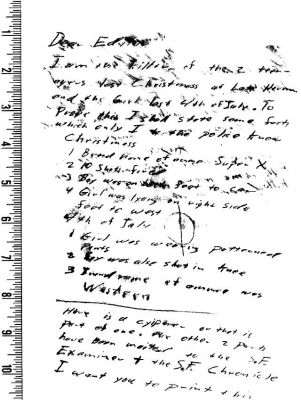 Dear Editor
I am the killer of the 2 teen
agers last Christmass at Lake Herman
and the Girl last 4th of July. To
Prove this I shall state some facts
which only I + the police know
Christmass
1 Brand name of ammo Super X
2 10 Shots fired
3 Boy was on back feet to car
4 Girl was lyeing on right side
feet to west
4th of July
1 Girl was wearing patterned
pants
2 Boy was also shot in knee
3 Brand name of ammo was
Western
Here is a cyipher or that is
part of one. the other 2 parts
have been mailed to the S.F.
Examiner + the S.F. Chronicle
I want you to print this
1
2
3
4
5
6
7
8
9
10